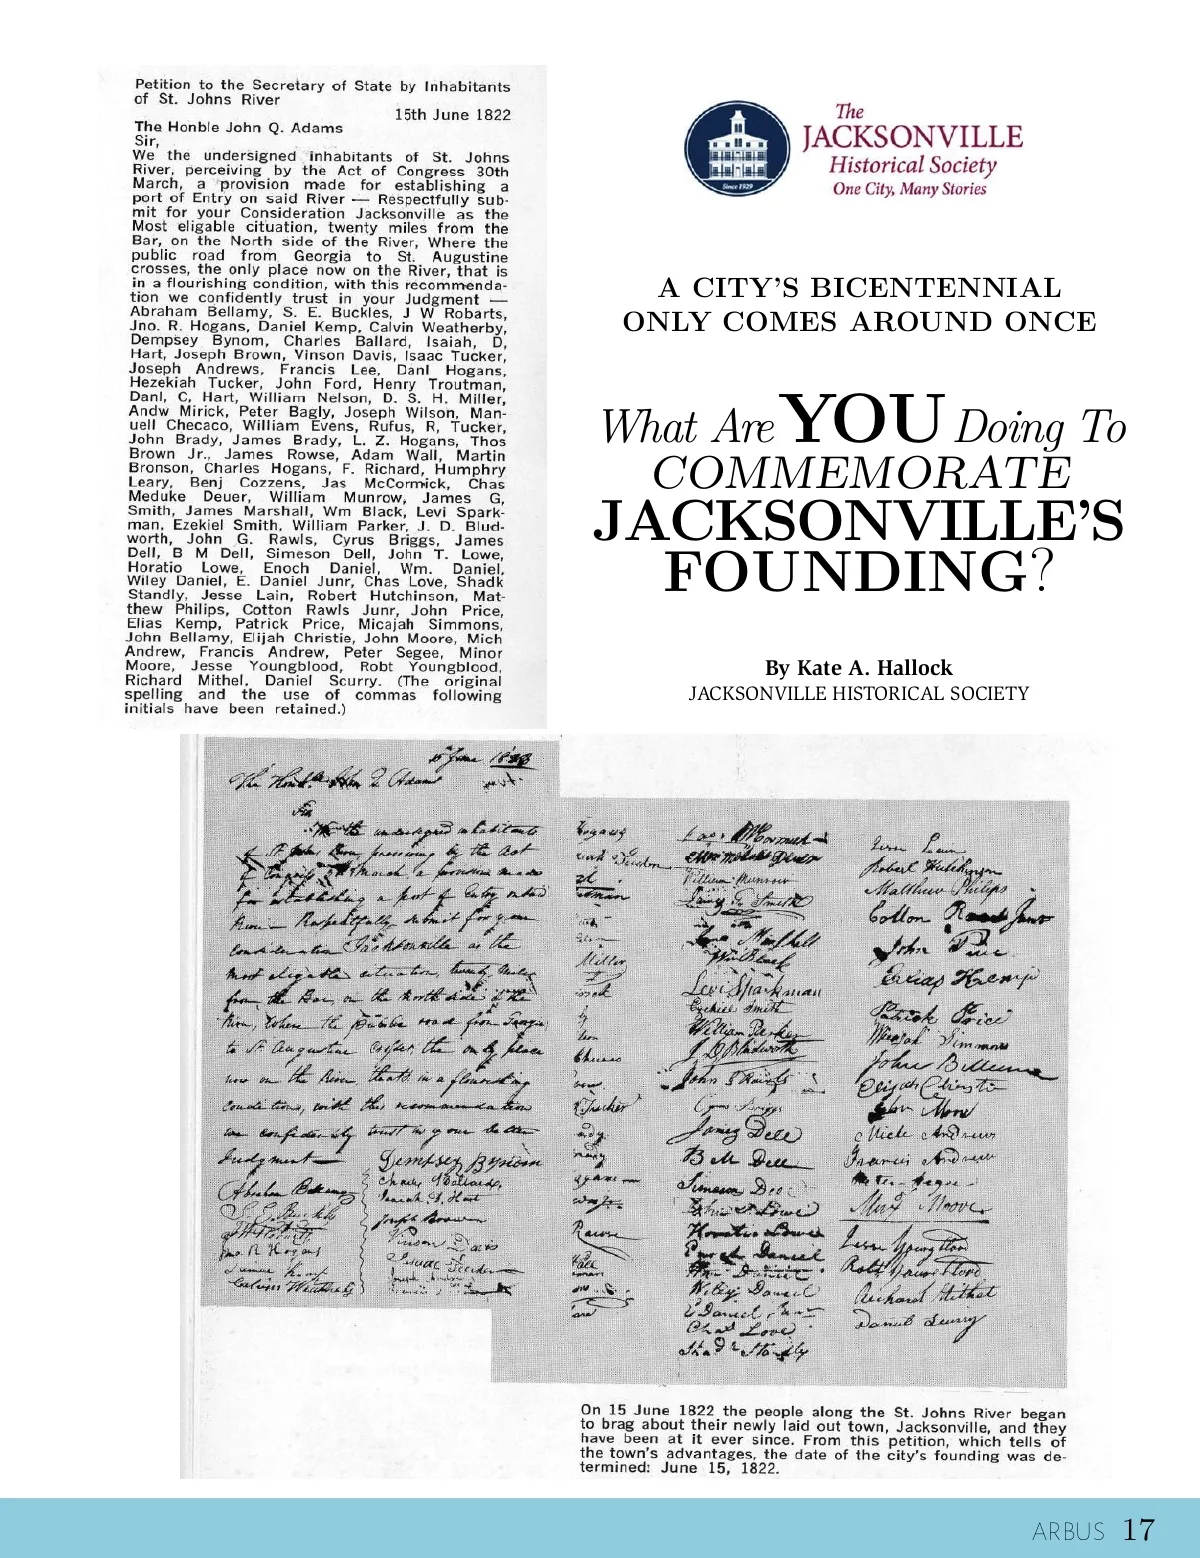 Petition to the Secretary of State by Inhabitants
of St. Johns River
15th June 1822
The Honble John Q. Adams
Sir,
We the undersigned inhabitants of St. Johns
River, perceiving by the Act of Congress 30th
March, a provision made for establishing a
port of Entry on said River — Respectfully sub-
mit for your Consideration Jacksonville as the
Most eligable cituation, twenty miles from the
Bar, on the North side of the River, Where the
public road from Georgia to St. Augustine
crosses, the only place now on the River, that is
in a flourishing condition, with this recommenda-
tion we confidently trust in your Judgment —
Abraham Bellamy, S. E. Buckles, J W Robarts,
Jno. R. Hogans, Daniel Kemp, Calvin Weatherby,
Dempsey Bynom, Charles Ballard, Isaiah, D,
Hart, Joseph Brown, Vinson Davis, Isaac Tucker,
Joseph Andrews, Francis Lee, Danl Hogans,
Hezekiah Tucker, John Ford, Henry Troutman,
Danl, C, Hart, William Nelson, D. S. H. Miller,
Andw Mirick, Peter Bagly, Joseph Wilson, Man-
uell Checaco, William Evens, Rufus, R, Tucker,
John Brady, James Brady, L. Z. Hogans, Thos
Brown Jr., James Rowse, Adam Wall, Martin
Bronson, Charles Hogans, F. Richard, Humphry
Leary, Benj Cozzens, Jas McCormick, Chas
Meduke Deuer, William Munrow, James G,
Smith, James Marshall, Wm Black, Levi Spark-
man, Ezekiel Smith, William Parker, J. D. Blud-
worth, John G. Rawls, Cyrus Briggs, James
Dell, B M Dell, Simeson Dell, John T. Lowe,
Horatio Lowe, Enoch Daniel, Wm. Daniel,
Wiley Daniel, E. Daniel Junr, Chas Love, Shadk
Standly, Jesse Lain, Robert Hutchinson, Mat-
thew Philips, Cotton Rawls Junr, John Price,
Elias Kemp, Patrick Price, Micajah Simmons,
John Bellamy, Elijah Christie, John Moore, Mich
Andrew, Francis Andrew, Peter Segee, Minor
Moore, Jesse Youngblood, Robt Youngblood,
Richard Mithel, Daniel Scurry. (The original
spelling and the use of commas following
initials have been retained.)
The
JACKSONVILLE
Historical Society
One City, Many Stories
Since 1929
A CITY'S BICENTENNIAL
ONLY COMES AROUND ONCE
What Are YOU Doing To
COMMEMORATE
JACKSONVILLE'S
FOUNDING?
By Kate A. Hallock
JACKSONVILLE HISTORICAL SOCIETY
June
Adams
undersigned inhabitants
of St John River perceiving by the Act
of Congress March a provision made
for establishing a port of Entry on said
River Respectfully submit for your
consideration Jacksonville as the
most eligable cituation, twenty Miles
from the Bar, on the North side of the
River, Where the public road from Georgia
to St Augustine crosses, the only place
now on the River, that is in a flourishing
condition, with this recommendation
we confidently trust in your
Judgment —
Dempsey Bynom
Charles Ballard,
Isaiah D. Hart
Joseph Brown
Vinson Davis
Isaac Tucker
Abraham Bellamy
Jno. R Hogans
Hogans
Miller
Tucker
Rawse
William Munrow
James G Smith
Wm Black
Levi Sparkman
Ezekiel Smith
William Parker
J D Bludworth
John G Rawls
Cyrus Briggs
James Dell
B M Dell
Simeson Dell
Horatio Lowe
Enoch Daniel
Wm Daniel
Wiley Daniel
E Daniel Junr
Chas Love
Robert Hutchinson
Matthew Philips
Cotton Junr
John Price
Elias Kemp
Patrick Price
Simmons
John Bellamy
Elijah Christie
John Moore
Mich Andrew
Francis Andrew
Moore
Jesse Youngblood
Robt Youngblood
Richard Mithel
Daniel Scurry
On 15 June 1822 the people along the St. Johns River began
to brag about their newly laid out town, Jacksonville, and they
have been at it ever since. From this petition, which tells of
the town's advantages, the date of the city's founding was de-
termined: June 15, 1822.
ARBUS 17